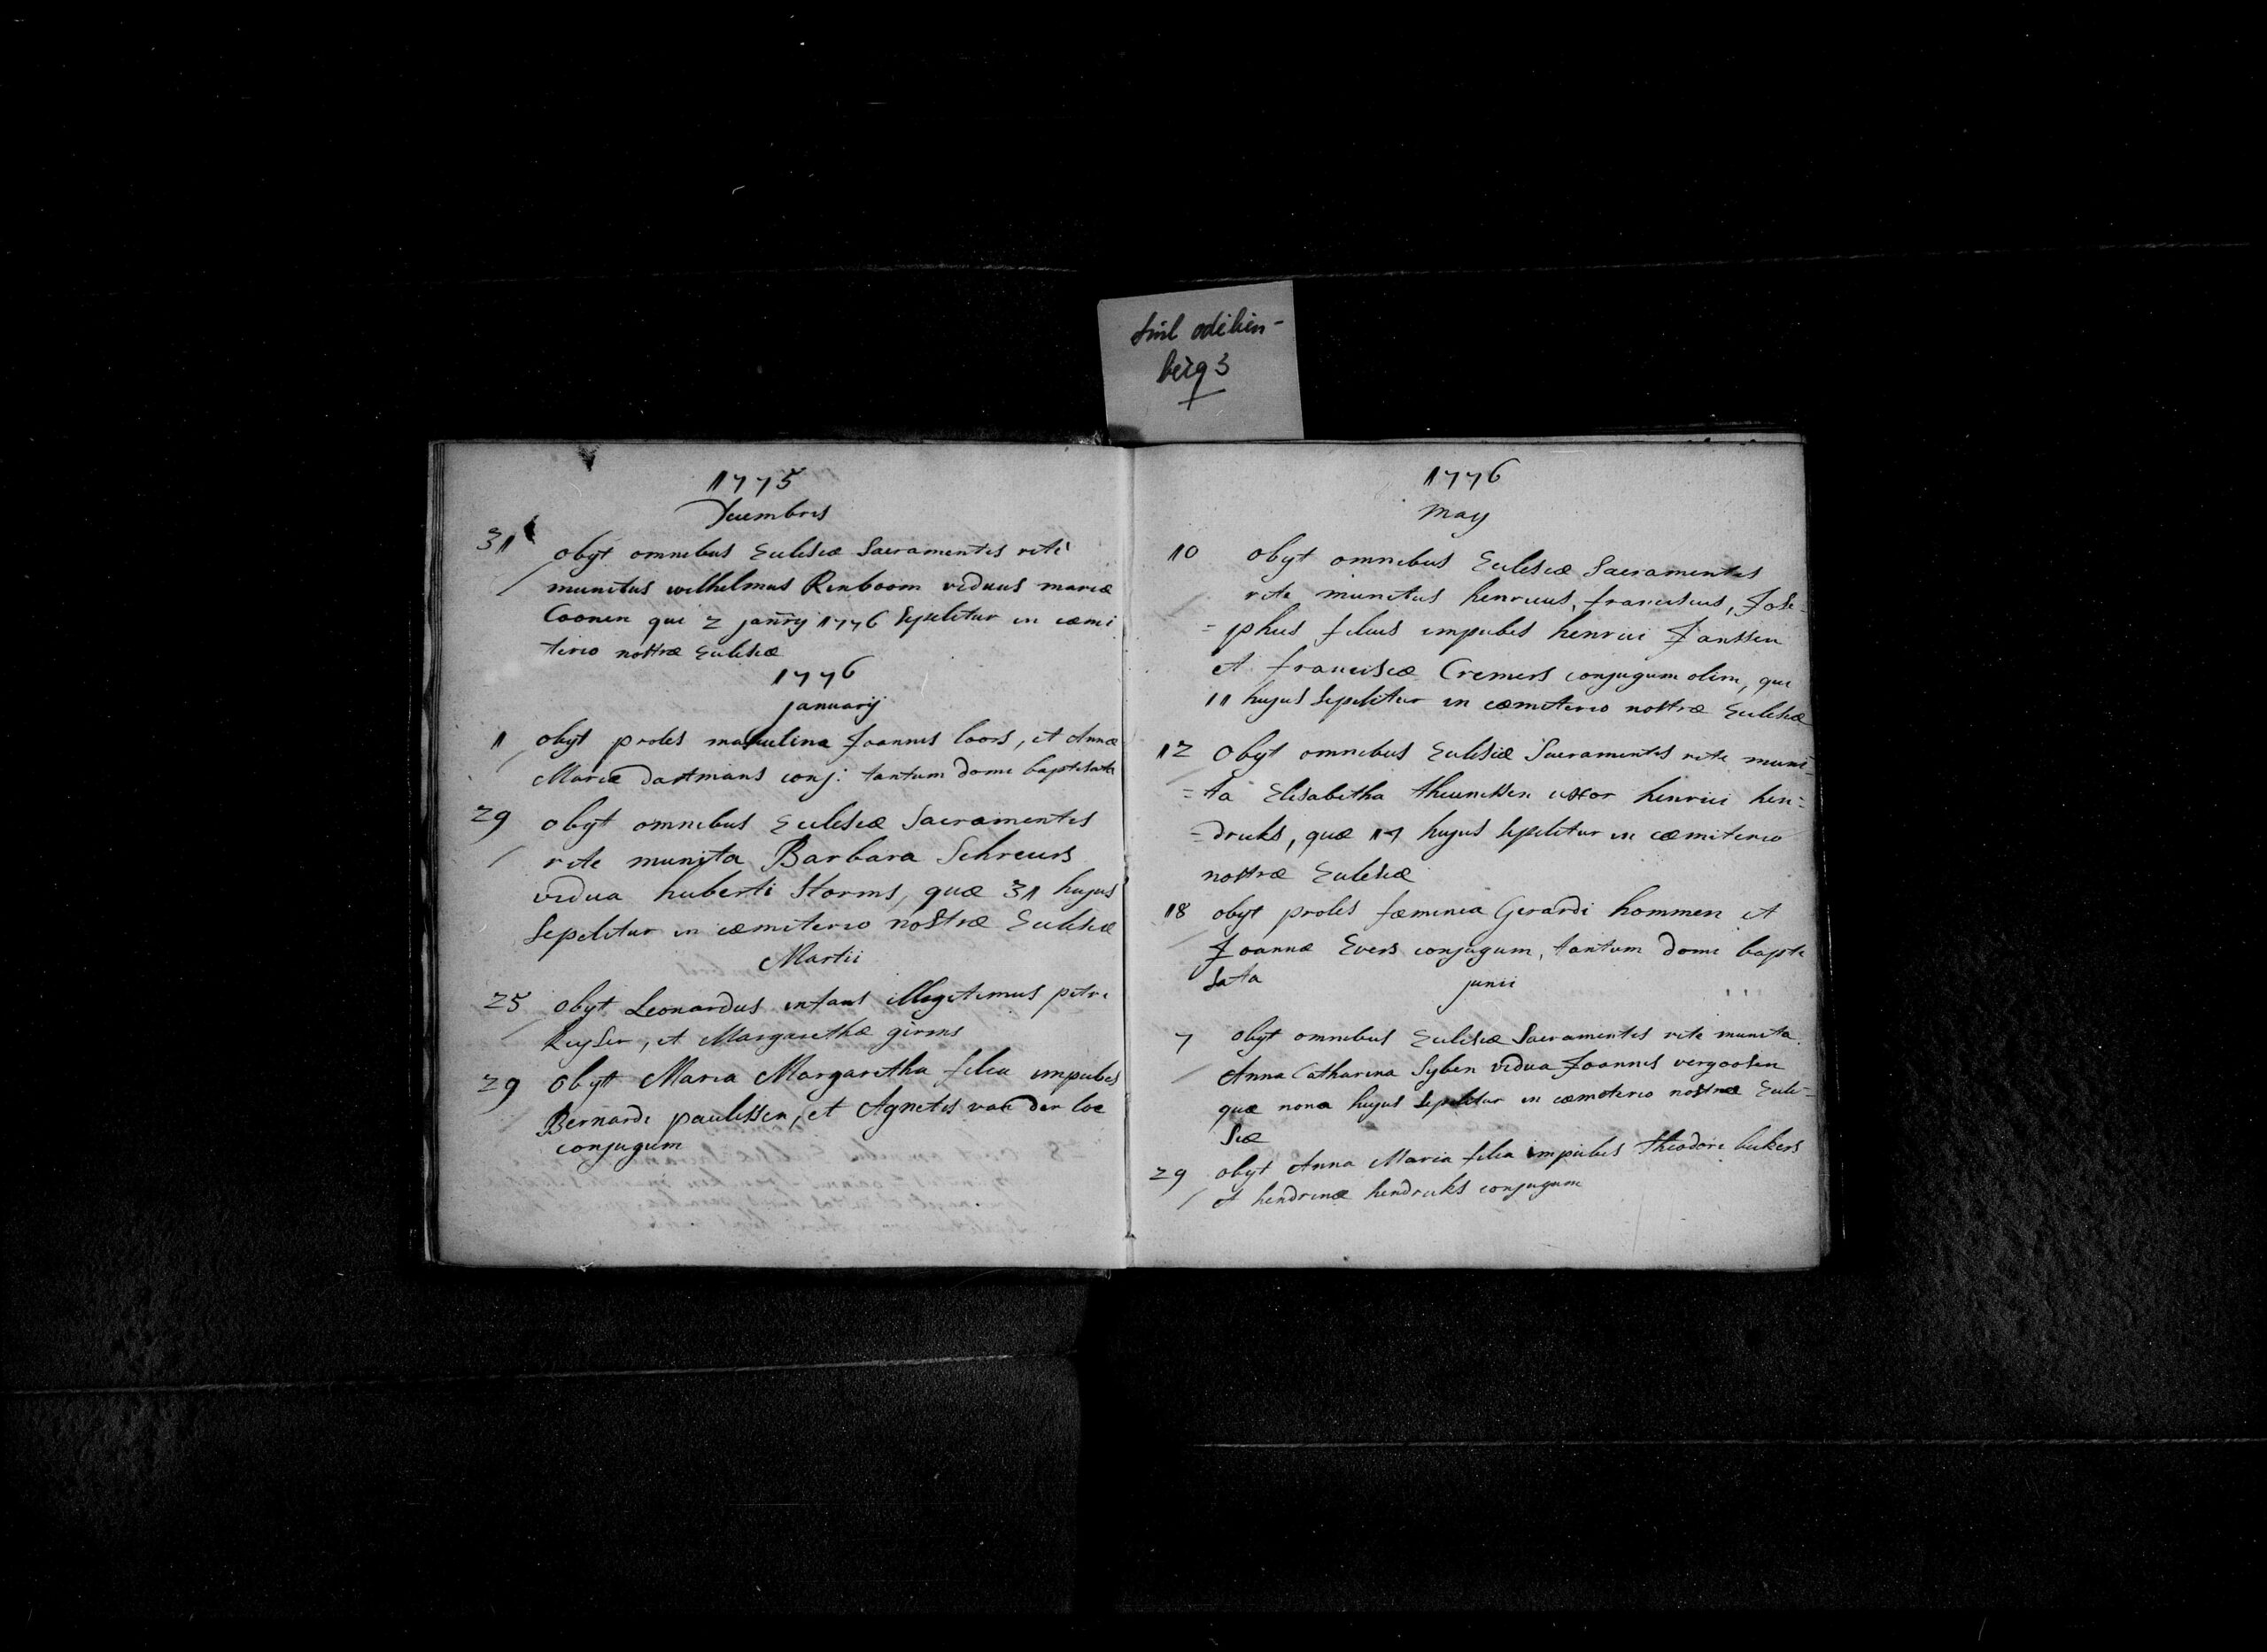 Sint odiliën-
berg 3
1775
Decembris
31 obijt omnibus Ecclesiæ Sacramentis ritè
munitus wilhelmus Rinboom viduus mariæ
Coonen qui 2 janrij 1776 Sepelitur in cæmi
terio nostræ Ecclesiæ
1776
januarij
1 obijt proles masculina Joannis loors, et Annæ
Mariæ dartmans conj: tantum domi baptisata
29 obijt omnibus Ecclesiæ Sacramentis
rite munita Barbara Schreurs
vidua huberti Storms, quæ 31 hujus
Sepelitur in cæmiterio nostræ Ecclesiæ
Martii
25 obijt Leonardus infans illegitimus petri
Keyser, et Margarethæ girms
29 obijt Maria Margaretha filia impubes
Bernardi paulissen, et Agnetis van der loe
conjugum
1776
maij
10 obijt omnibus Ecclesiæ Sacramentis
rite munitus henricus, franciscus, Jose=
=phus filius impubes henrici Janssen
et franciscæ Cremers conjugum olim, qui
11 hujus Sepelitur in cæmiterio nostræ Ecclesiæ
12 obijt omnibus Ecclesiæ Sacramentis rite muni=
=ta Elisabetha theunissen uxor henrici hen=
=dricks, quæ 14 hujus Sepelitur in cæmiterio
nostræ Ecclesiæ
18 obijt proles fæminea Gerardi hommen et
Joannæ Evers conjugum, tantum domi bapti
sata
junii
7 obijt omnibus Ecclesiæ Sacramentis rite munita
Anna Catharina Syben vidua Joannis vergoosen
quæ nona hujus Sepelitur in cæmiterio nostræ Eccle=
siæ
29 obijt Anna Maria filia impubes theodori beckers
et hendrinæ hendricks conjugum